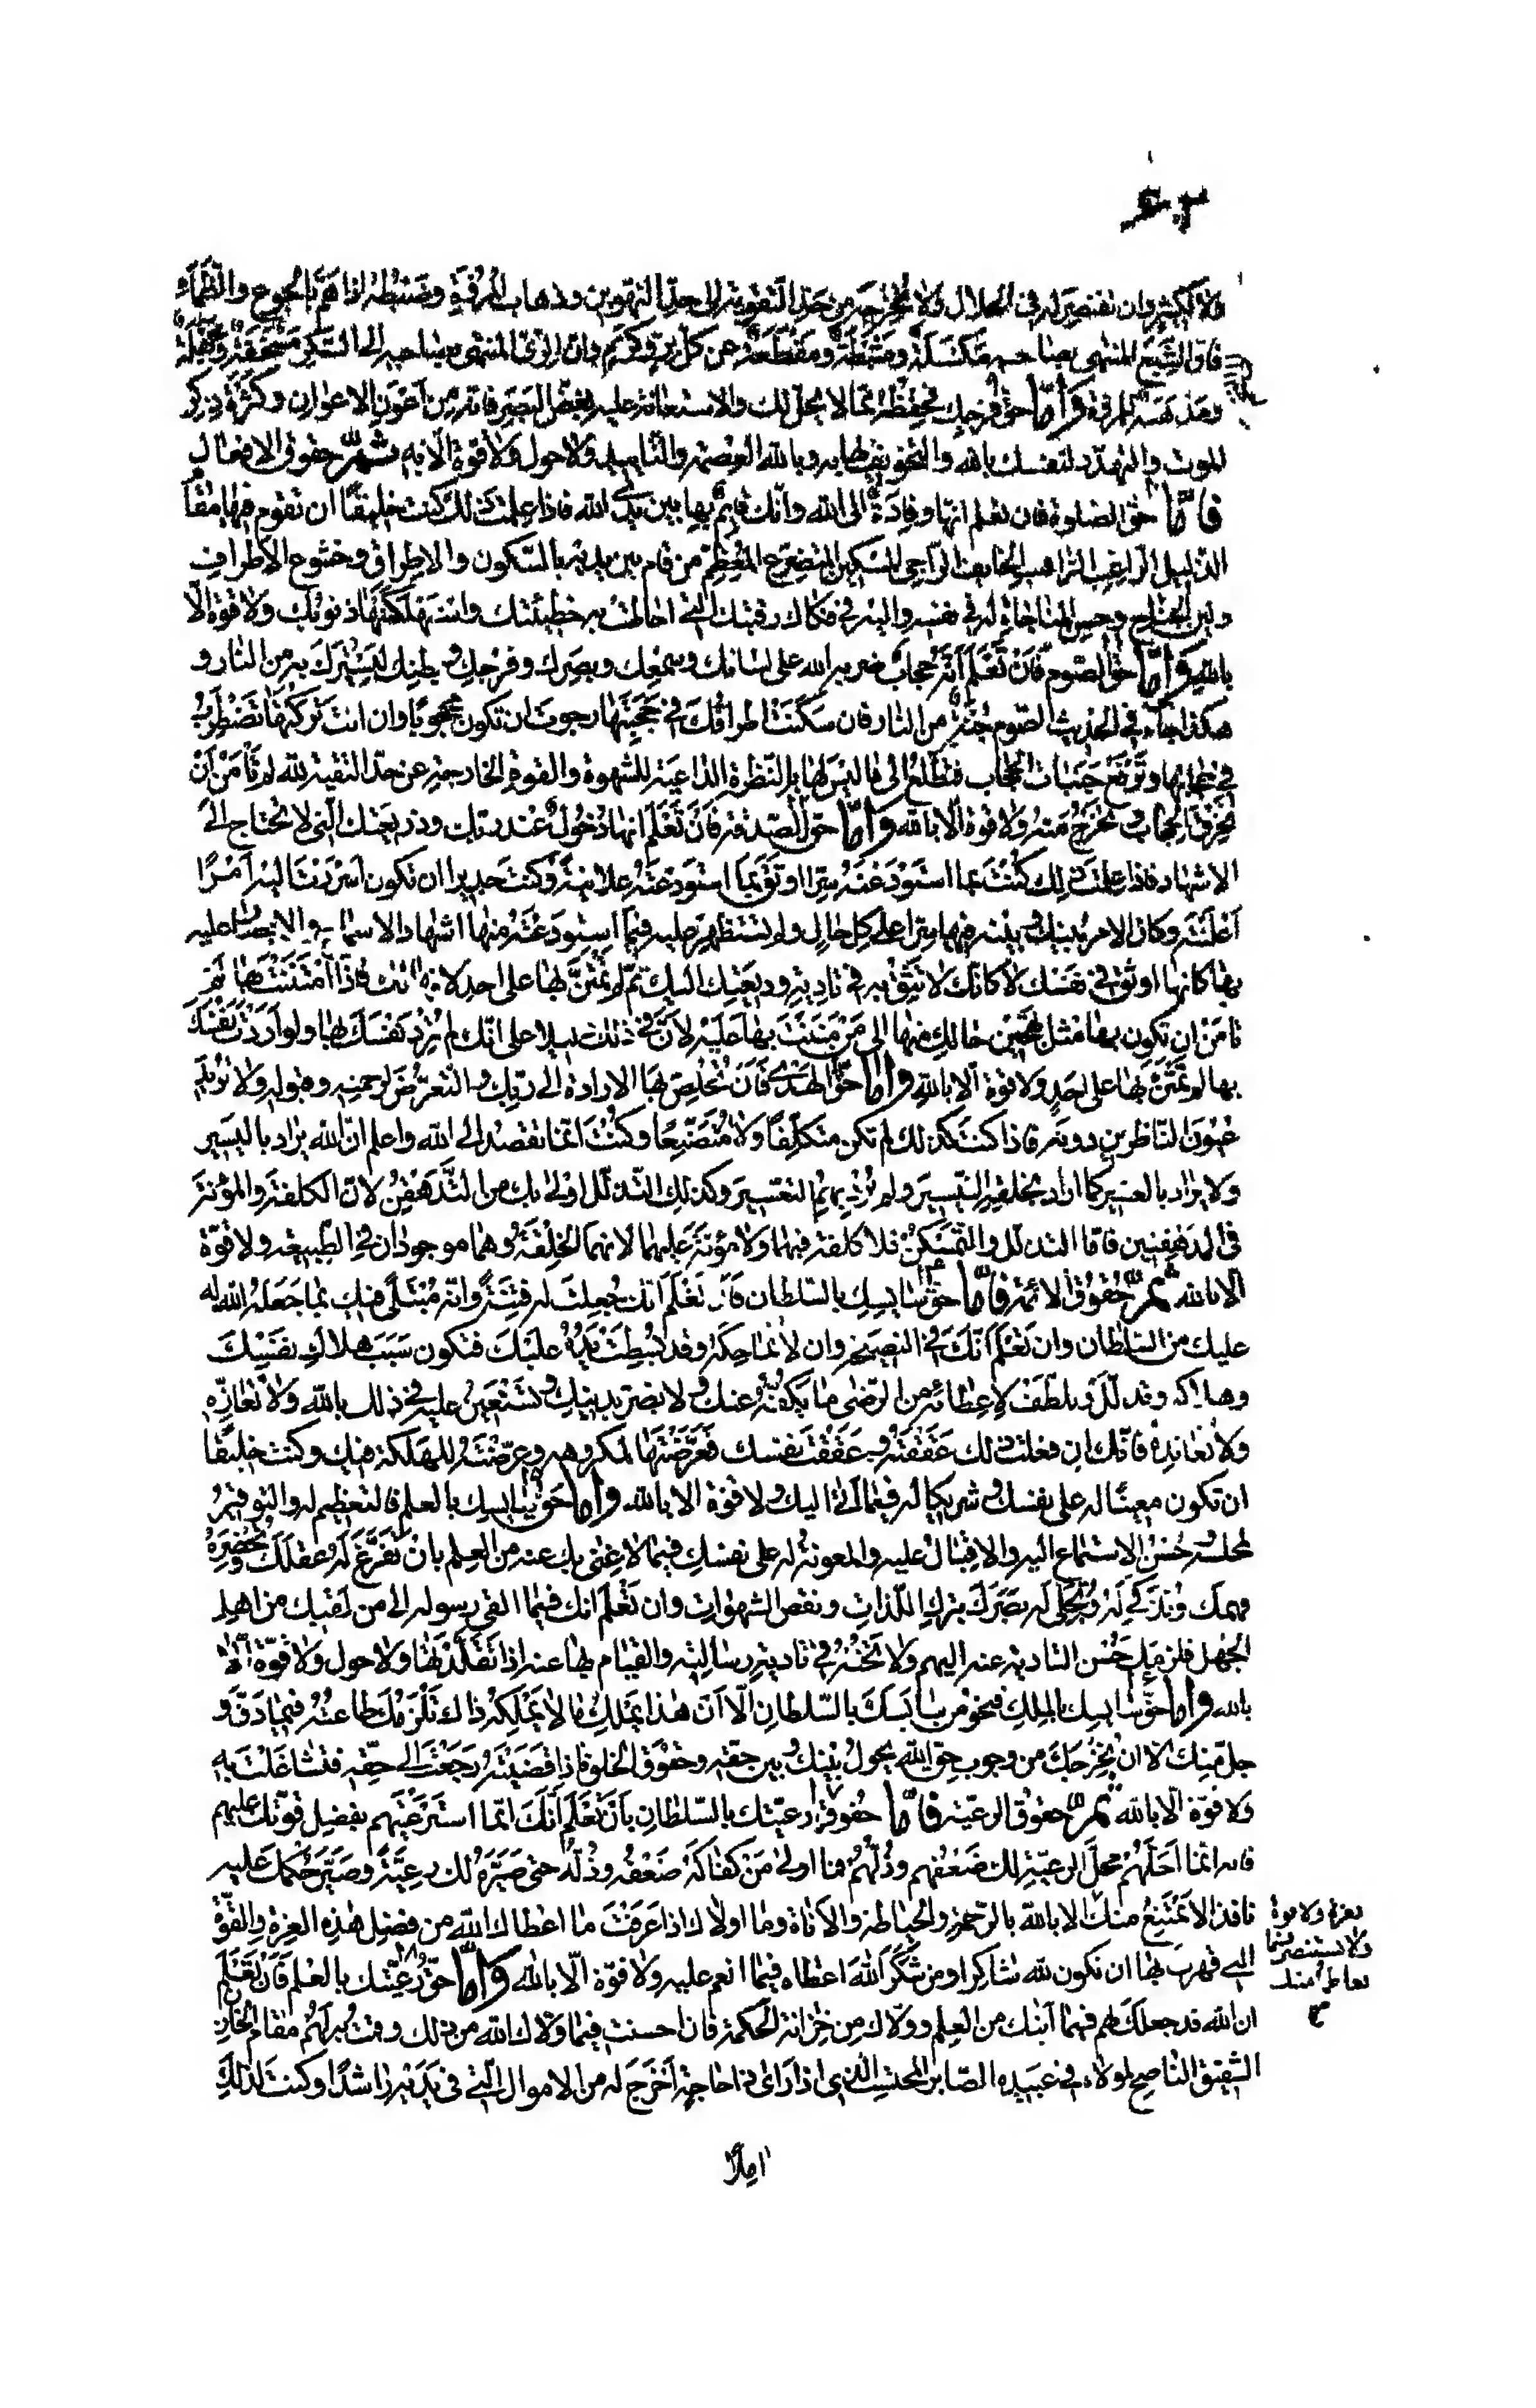 ٤٠٣
ولا لكثير وان تقتصر له في الحلال ولا تخرجه من حد التقوية الى حد التهوين وذهاب المروة وتضبطه اذا هم بالجوع والظماء
فان الشبع المنتهى بصاحبه مكسلة ومثبطة ومقطعة عن كل بر وكرم وان الرى المنتهى بصاحبه الى السكر مسخفة ومجهلة
ومذهبة للمروة واما حق فرجك فحفظه مما لا يحل لك والاستعانة عليه بغض البصر فانه من اعون الاعوان وكثرة ذكر
الموت والتهدد لنفسك بالله والتخويف لها به وبالله العصمة والتاييد ولا حول ولا قوة الا به ثم حقوق الافعال
فاما حق الصلوة فان تعلم انها وفادة الى الله وانك قائم بها بين يدى الله فاذا علمت ذلك كنت خليقا ان تقوم فيها مقام
الذليل الراغب الراهب الخائف الراجى المسكين المتضرع المعظم من قام بين يديه بالسكون والاطراق وخشوع الاطراف
ولين الجناح وحسن المناجاة له في نفسه واليه في فكاك رقبتك التى احاطت به خطيئتك واستهلكتها ذنوبك ولا قوة الا
بالله واما حق الصوم فان تعلم انه حجاب ضربه الله على لسانك وسمعك وبصرك وفرجك وبطنك ليسترك به من النار و
هكذا جاء في الحديث الصوم جنة من النار فان سكنت اطرافك في حجبتها رجوت ان تكون محجوبا وان انت تركتها تضطرب
في حجابها وترفع جنبات الحجاب فتطلع الى ما ليس لها بالنظرة الداعية للشهوة والقوة الخارجة عن حد التقية لله لم تامن ان
تخرق الحجاب وتخرج منه ولا قوة الا بالله واما حق الصدقة فان تعلم انها ذخرك عند ربك ووديعتك التى لا تحتاج الى
الاشهاد فاذا علمت ذلك كنت بما استودعته سرا اوثق بما استودعته علانية وكنت جديرا ان تكون اسررت اليه امرا
اعلنته وكان الامر بينك وبينه فيها سرا على كل حال ولم تستظهر عليه فيما استودعته منها اشهاد الاسماع والابصار عليه
بها كانها اوثق في نفسك لا كانك لا تثق به في تادية وديعتك اليك ثم لم تمتن بها على احد لانها لك فاذا امتننت بها لم
تامن ان تكون بها مثل تهجين حالك منها الى من مننت بها عليه لان في ذلك دليلا على انك لم ترد نفسك بها ولو اردت نفسك
بها لم تمتن بها على احد ولا قوة الا بالله واما حق الهدى فان تخلص بها الارادة الى ربك والتعرض لرحمته وقبوله ولا تريد
عيون الناظرين دونه فاذا كنت كذلك لم تكن متكلفا ولا متصنعا وكنت انما تقصد الى الله واعلم ان الله يراد باليسير
ولا يراد بالعسير كما اراد بخلقه التيسير ولم يرد بهم التعسير وكذلك التذلل اولى بك من التدهقن لان الكلفة والمؤنة
في المدهقنين فاما التذلل والتمسكن فلا كلفة فيهما ولا مؤنة عليهما لانهما الخلقة وهما موجودان في الطبيعة ولا قوة
الا بالله ثم حقوق الائمة فاما حق سايسك بالسلطان فان تعلم انك جعلت له فتنة وانه مبتلى فيك بما جعله الله له
عليك من السلطان وان تعلم انك في النصيحة وان لا تماحكه وقد بسطت يده عليك فتكون سبب هلاك نفسك
وهلاكه وتذلل وتلطف لاعطائه من الرضى ما يكفه عنك ولا يضر بدينك وتستعين عليه في ذلك بالله ولا تعازه
ولا تعانده فانك ان فعلت ذلك عققته وعققت نفسك فعرضتها لمكروهه وعرضته للهلكة فيك وكنت خليقا
ان تكون معينا له على نفسك وشريكا له فيما اتى اليك ولا قوة الا بالله واما حق سايسك بالعلم فالتعظيم له والتوقير
لمجلسه وحسن الاستماع اليه والاقبال عليه والمعونة له على نفسك فيما لا غنى بك عنه من العلم بان تفرغ له عقلك وتحضره
فهمك وتذكى له وتجلى له بصرك بترك اللذات ونقص الشهوات وان تعلم انك فيما القى رسوله الى من لقيك من اهل
الجهل فلزمك حسن التادية عنه اليهم ولا تخنه في تادية رسالته والقيام بها عنه اذا تقلدتها ولا حول ولا قوة الا
بالله واما حق سايسك بالملك فنحو من سايسك بالسلطان الا ان هذا يملك ما لا يملكه ذاك تلزمك طاعته فيما دق و
جل منك الا ان يخرجك من وجوب حق الله يحول بينك وبين حقه وحقوق الخلق فاذا قضيته رجعت الى حقه فتشاغلت به
ولا قوة الا بالله ثم حقوق الرعية فاما حقوق رعيتك بالسلطان بان تعلم انك انما استرعيتهم بفضل قوتك عليهم
فانه انما احلهم محل الرعية لك ضعفهم وذلهم فما اولى من كفاكه ضعفه وذله حتى صيره لك رعية وصير حكمك عليه
نافذا لا يمتنع منك الا بالله بالرحمة والحياطة والاناة وما اولاك اذا عرفت ما اعطاك الله من فضل هذه العزة والقوة
بعزة ولا قوة
ولا يستنصر فيما
تعاظمه منك
التى قهرت بها ان تكون لله شاكرا ومن شكر الله اعطاه فيما انعم عليه ولا قوة الا بالله واما حق رعيتك بالعلم فان تعلم
ان الله قد جعلك لهم فيما اتيك من العلم وولاك من خزانة الحكمة فان احسنت فيما ولاك الله من ذلك وقمت به لهم مقام الخازن
الشفيق الناصح لمولاه في عبيده الصابر المحتسب الذى اذا راى ذا حاجة اخرج له من الاموال التى في يديه راشدا وكنت لذلك
املا